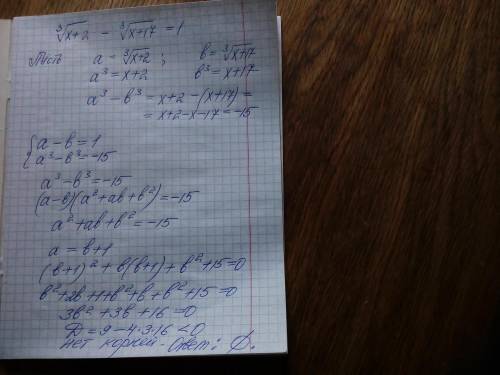 ∛x+2 − ∛x+17 = 1
Пусть a = ∛x+2 ; b = ∛x+17
a³ = x+2 b³ = x+17
a³ − b³ = x+2 − (x+17) =
= x+2−x−17 = −15
{ a − b = 1
a³ − b³ = −15
a³ − b³ = −15
(a−b)(a²+ab+b²) = −15
a² + ab + b² = −15
a = b+1
(b+1)² + b(b+1) + b² + 15 = 0
b²+2b+1+b²+b+b²+15 = 0
3b² + 3b + 16 = 0
D = 9 − 4·3·16 < 0
нет корней. Ответ: ∅.